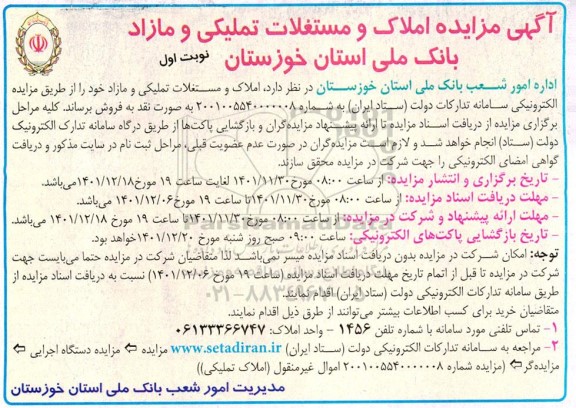 آگهی مزایده املاک و مستغلات تملیکی و مازاد
بانک ملی استان خوزستان
نوبت اول
اداره امور شعب بانک ملی استان خوزستان در نظر دارد، املاک و مستغلات تملیکی و مازاد خود را از طریق مزایده
الکترونیکی سامانه تدارکات دولت (ستاد ایران) به شماره ۲۰۰۱۰۰۵۵۴۰۰۰۰۰۰۸ به صورت نقد به فروش برساند. کلیه مراحل
برگزاری مزایده از دریافت اسناد مزایده تا ارائه پیشنهاد مزایده‌گران و بازگشایی پاکت‌ها از طریق درگاه سامانه تدارک الکترونیک
دولت (ستاد) انجام خواهد شد و لازم است مزایده‌گران در صورت عدم عضویت قبلی، مراحل ثبت نام در سایت مذکور و دریافت
گواهی امضای الکترونیکی را جهت شرکت در مزایده محقق سازند.
- تاریخ برگزاری و انتشار مزایده: از ساعت ۰۸:۰۰ مورخ۱۴۰۱/۱۱/۳۰ لغایت ساعت ۱۹ مورخ۱۴۰۱/۱۲/۱۸می‌باشد.
- مهلت دریافت اسناد مزایده: از ساعت ۰۸:۰۰ مورخ۱۴۰۱/۱۱/۳۰تا ساعت ۱۹ مورخ۱۴۰۱/۱۲/۰۶می‌باشد.
- مهلت ارائه پیشنهاد و شرکت در مزایده: از ساعت ۰۸:۰۰ مورخ۱۴۰۱/۱۱/۳۰تا ساعت ۱۹ مورخ ۱۴۰۱/۱۲/۱۸ می‌باشد.
- تاریخ بازگشایی پاکت‌های الکترونیکی: ساعت ۰۹:۰۰ صبح روز شنبه مورخ ۱۴۰۱/۱۲/۲۰خواهد بود.
توجه: امکان شرکت در مزایده بدون دریافت اسناد مزایده میسر نمی‌باشد لذا متقاضیان شرکت در مزایده حتما می‌بایست جهت
شرکت در مزایده تا قبل از اتمام تاریخ مهلت دریافت اسناد مزایده (ساعت ۱۹ مورخ ۱۴۰۱/۱۲/۰۶) نسبت به دریافت اسناد مزایده از
طریق سامانه تدارکات الکترونیکی دولت (ستاد ایران) اقدام نمایند.
متقاضیان خرید برای کسب اطلاعات بیشتر می‌توانند از طرق ذیل اقدام نمایند.
۱- تماس تلفنی مورد سامانه با شماره تلفن ۱۴۵۶ - واحد املاک: ۰۶۱۳۳۳۶۶۷۴۷
۲- مراجعه به سامانه تدارکات الکترونیکی دولت (ستاد ایران) www.setadiran.ir مزایده ⇐ مزایده دستگاه اجرایی ⇐
مزایده‌گر⇐ (مزایده شماره ۲۰۰۱۰۰۵۵۴۰۰۰۰۰۰۸ اموال غیرمنقول (املاک تملیکی))
مدیریت امور شعب بانک ملی استان خوزستان
ParsNamadData
۰۲۱-۸۸۳۴۹۶۷۰-۵